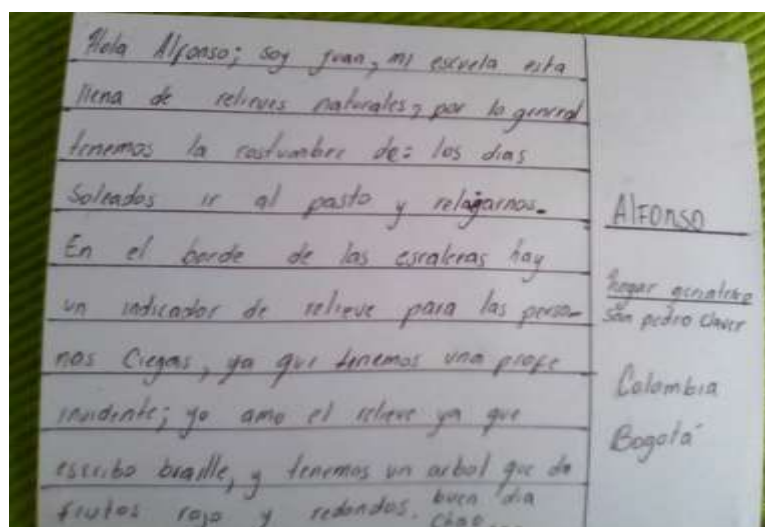 Hola Alfonso; soy Juan, mi escuela esta
llena de relieves naturales, por lo general
tenemos la costumbre de: los dias
Soleados ir al pasto y relajarnos.
En el borde de las escaleras hay
un indicador de relieve para las perso-
nas Ciegas, ya que tenemos una profe
invidente; yo amo el relieve ya que
escribo braille, y tenemos un arbol que da
frutos rojo y redondos. buen dia
chao
Alfonso
hogar geriatrico
San pedro Claver
Colombia
Bogotá